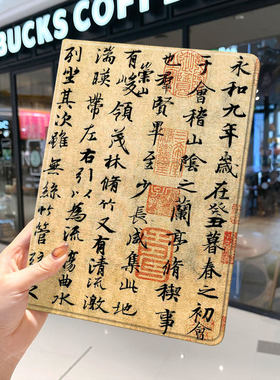 BUCKS COFFEE
永和九年歲在癸丑暮春之初會
于會稽山陰之蘭亭脩禊事
也群賢畢至少長咸集此地
有崇山峻領茂林脩竹又有清流激
湍暎帶左右引以為流觴曲水
列坐其次雖無絲竹管弦之